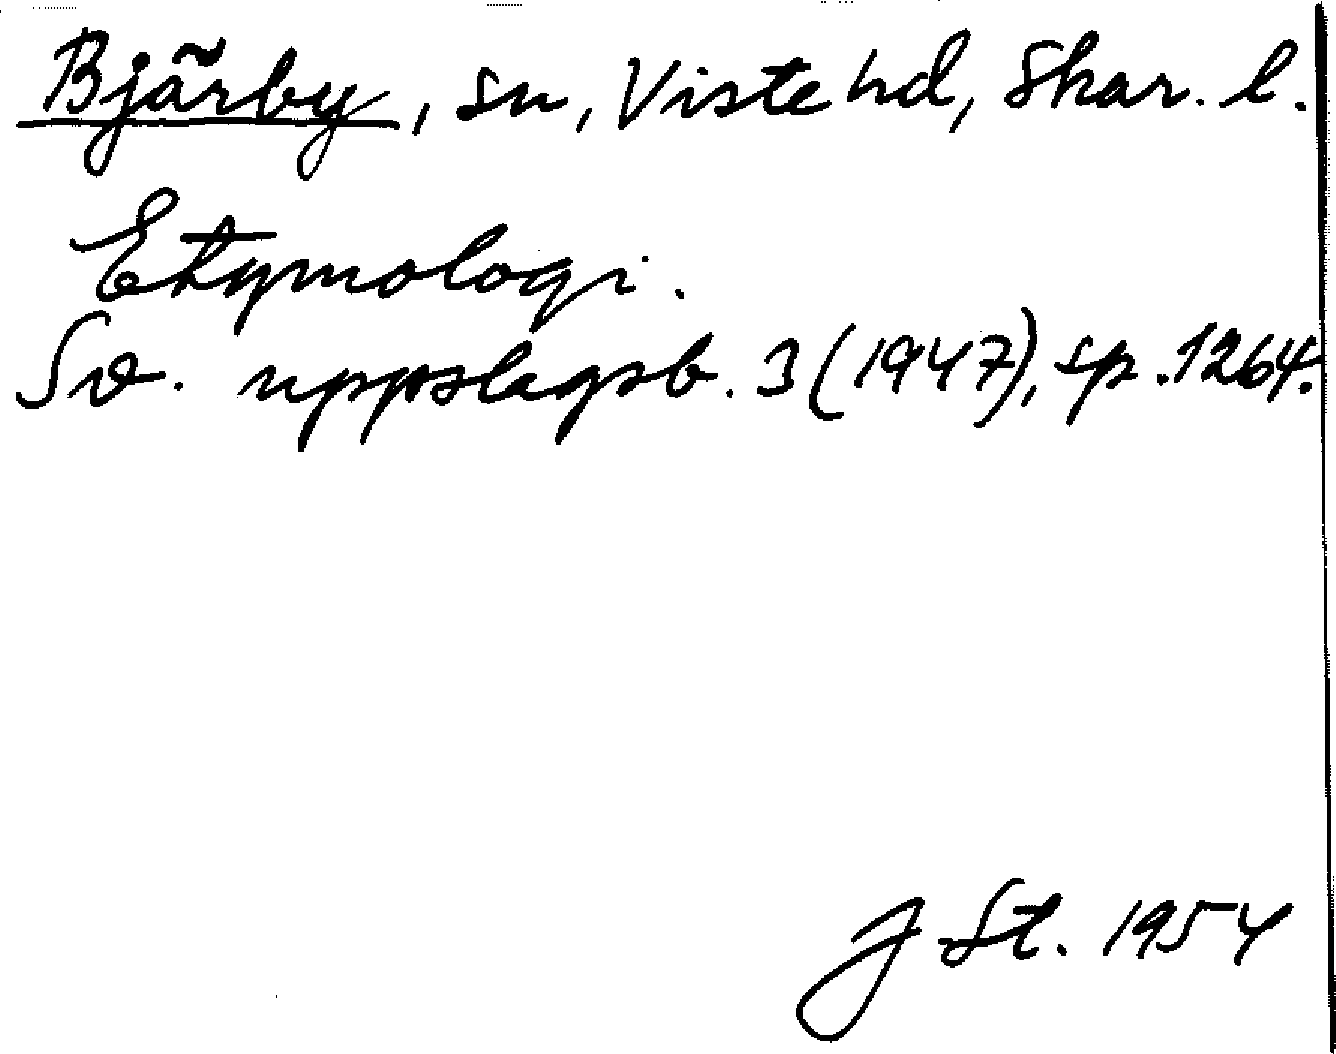 Bjärby, sn, Viste hd, Skar. l.
Etymologi.
Sv. uppslagsb. 3 (1947), sp. 1264.
J St. 1954